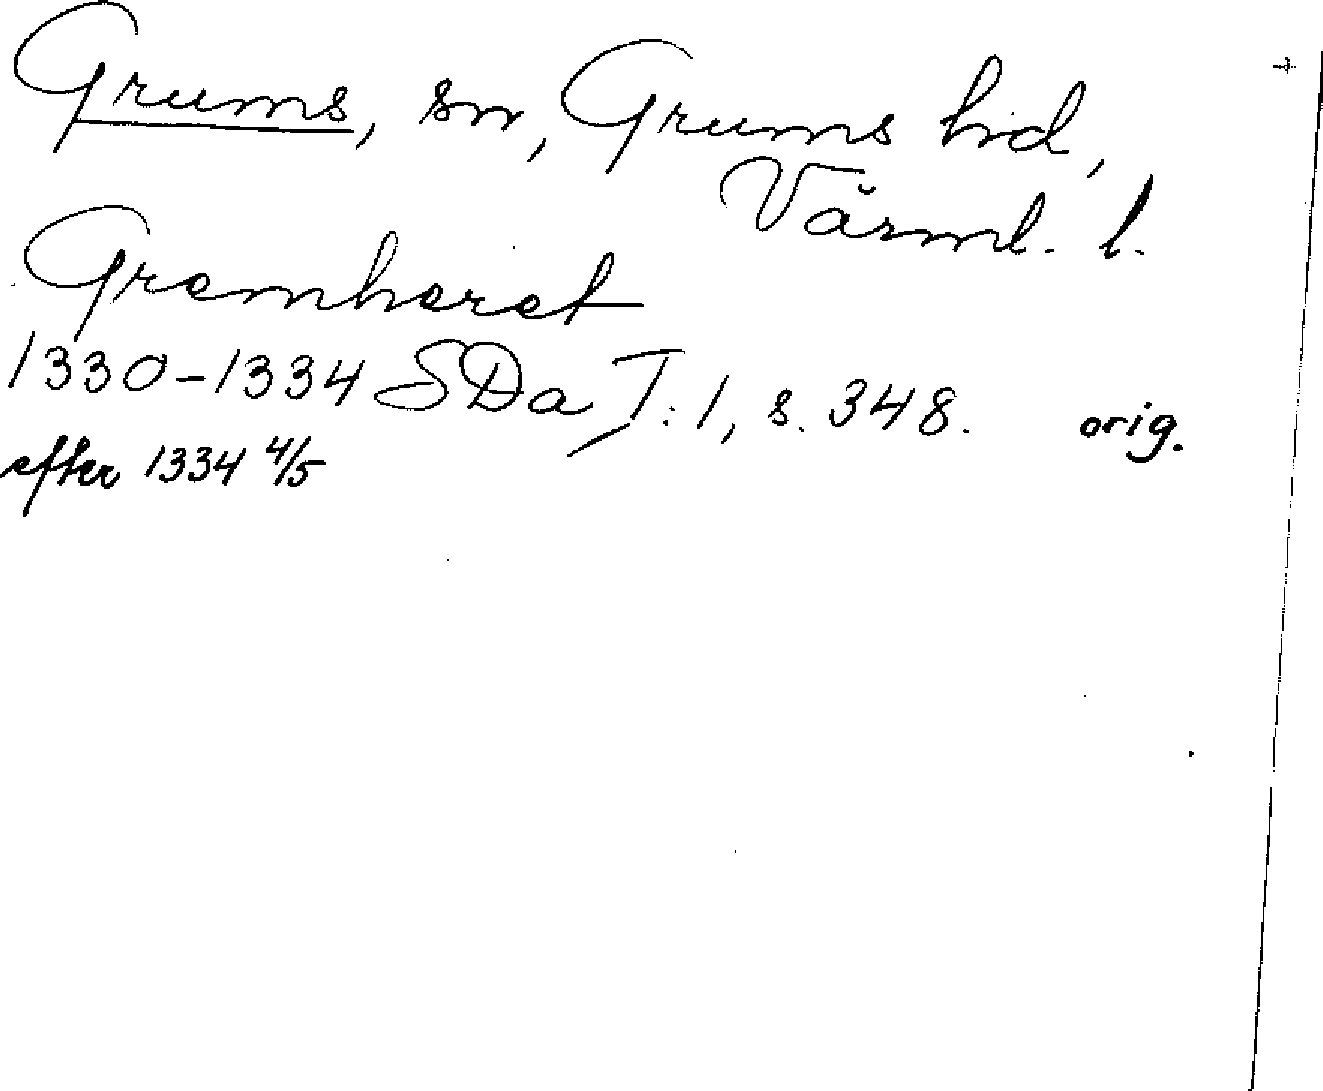 Grums, sn, Grums hd,
Värml. l.
Gremheret
1330-1334 SDa I:1, s. 348. orig.
efter 1334 4/5